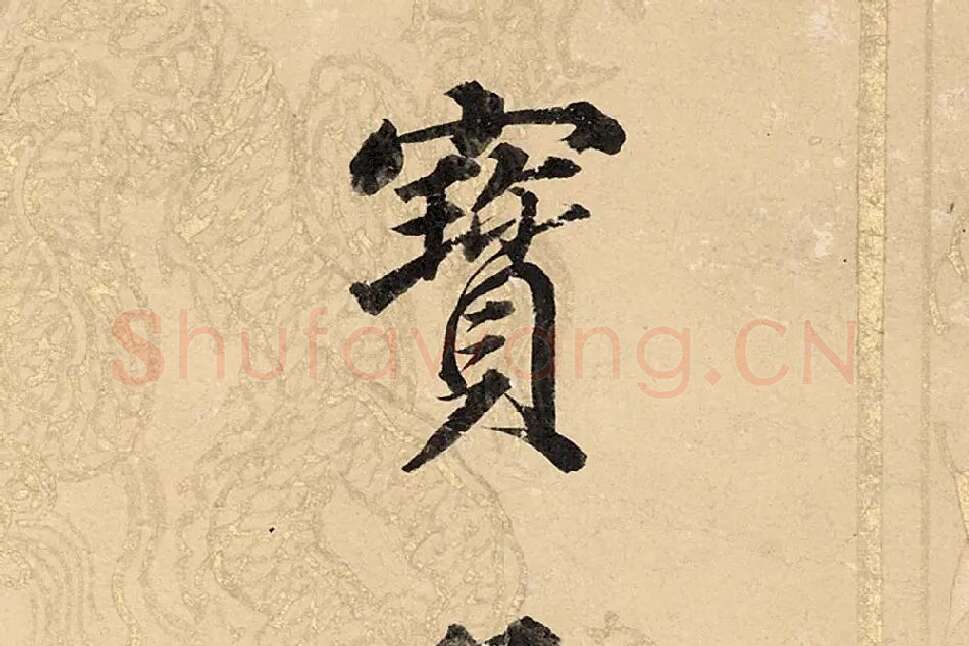 寶
Shufawang.CN